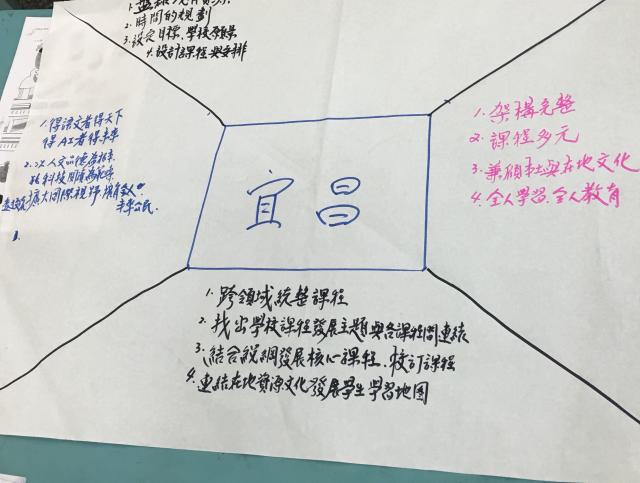 2. 時間的規劃
3. 設定目標、學校願景
4. 設計課程與安排
1. 得語文者得天下
得AI者得未來
2. 以人文品德為根本
科技
擴大國際視野
未來公民。
宜昌
1. 架構完整
2. 課程多元
3. 兼顧本土與在地文化
4. 全人學習、全人教育
1. 跨領域統整課程
2. 找出學校課程發展主題與各課程間連結
3. 結合綱發展核心課程、校訂課程
4. 連結在地資源文化發展學生學習地圖